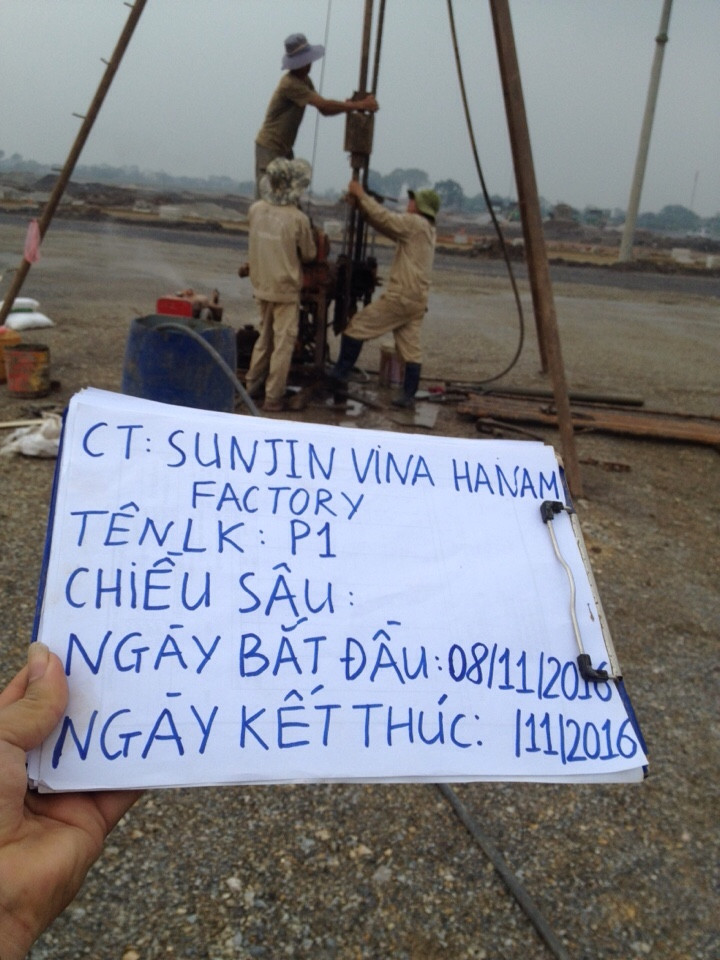 CT: SUNJIN VINA HANAM
FACTORY
TÊN LK: P1
CHIỀU SÂU:
NGÀY BẮT ĐẦU: 08/11/2016
NGÀY KẾT THÚC: /11/2016